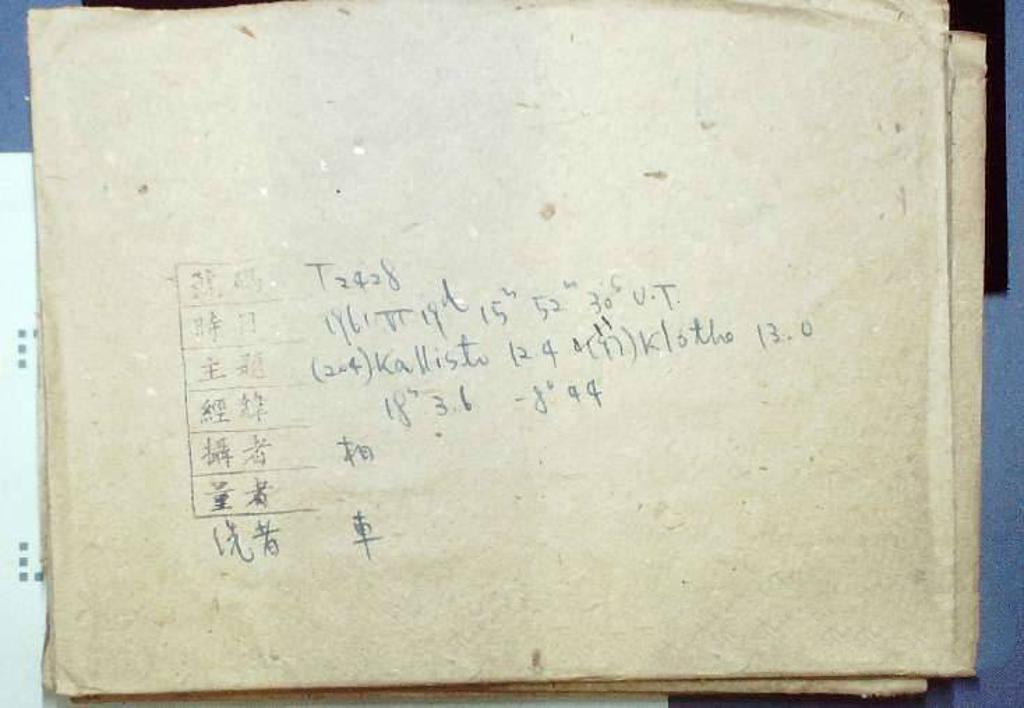 號碼 T2428
時日 1961 VI 19d 15h 52m 30s U.T.
主題 (204) Kallisto 12.4 (97) Klotho 13.0
經緯 18h 3.6 -8° 44
攝者 相
量者
洗者 車